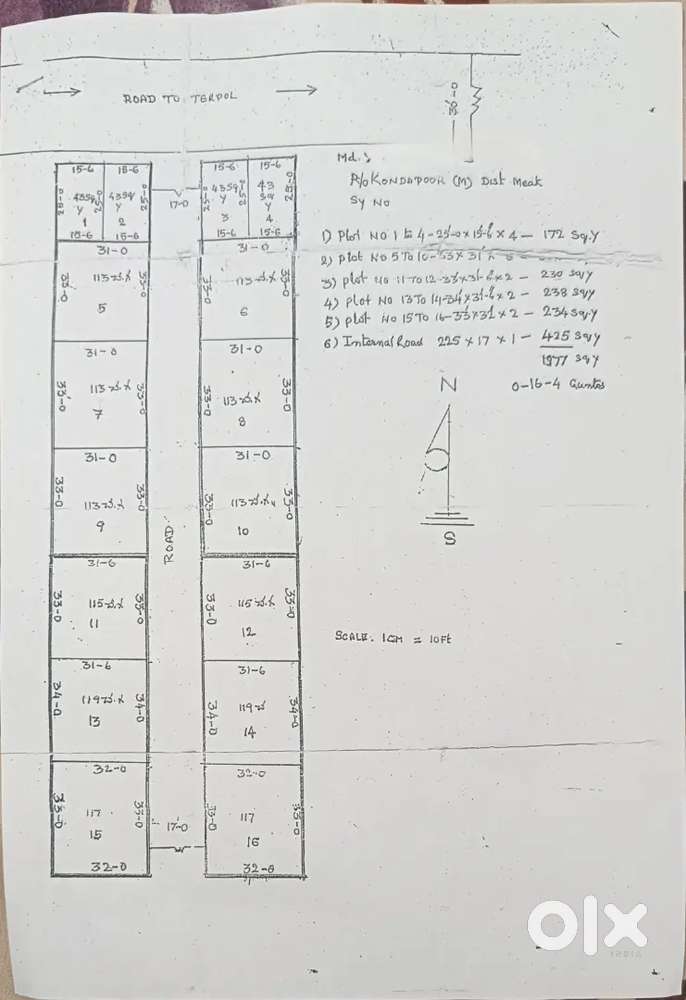 ROAD TO TERPOL
36-0
15-6 15-6 15-6 15-6
25-0 43Sqy 25-0 43Sqy 25-0 43Sqy 25-0 43 Sqy 25-0
1 2 3 4
15-6 15-6 15-6 15-6
17-0
31-0 31-0
33-0 113చ.గ 33-0 33-0 113చ.గ 33-0
5 6
31-0 31-0
33-0 113చ.గ 33-0 33-0 113చ.గ 33-0
7 8
31-0 31-0
33-0 113చ.గ 33-0 33-0 113చ.గ 33-0
9 10
ROAD
31-6 31-6
33-0 115చ.గ 33-0 33-0 115చ.గ 33-0
11 12
31-6 31-6
34-0 119చ.గ 34-0 34-0 119చ 34-0
13 14
32-0 32-0
33-0 117 33-0 17-0 33-0 117 33-0
15 16
32-0 32-0
Md.:
R/o KONDAPOOR (M) Dist Medak
Sy No
1) Plot No 1 to 4-25-0x15-6 x 4 - 172 Sq.Y
2) Plot No 5 To 10-33x31x6 -
3) Plot No 11 To 12-33x31-6x2 - 230 Sqy
4) Plot No 13 To 14-34x31-6x2 - 238 Sqy
5) Plot No 15 To 16-33x32 x 2 - 234 Sq.y
6) Internal Road 225 x 17 x 1 - 425 Sqy
1977 Sq Y
0-16-4 Guntas
N
S
SCALE. 1CM = 10Ft
olx
INDIA